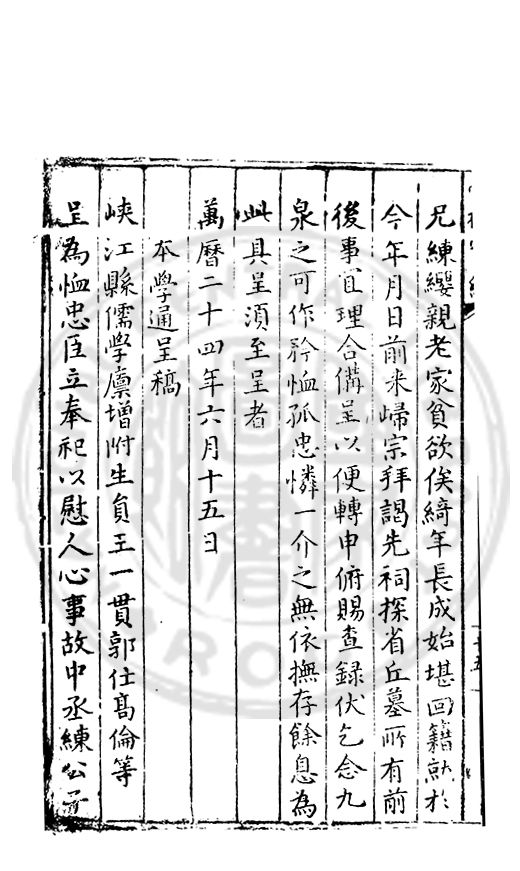 兄練纓親老家貧欲俟綺年長成始堪回籍就於
今年月日前来歸宗拜謁先祠探省丘墓所有前
後事宜理合備呈以便轉申俯賜查錄伏乞念九
泉之可作矜恤孤忠憐一介之無依撫存餘息為
此具呈須至呈者
萬曆二十四年六月十五日
本學通呈稿
峽江縣儒學廪增附生員王一貫郭仕髙倫等
呈為恤忠臣立奉祀以慰人心事故中丞練公子